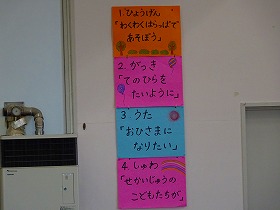 1.ひょうげん
「わくわくはらっぱで
あそぼう」
2.がっき
「てのひらを
たいように」
3 うた
「おひさまに
なりたい」
4.しゅわ
「せかいじゅうの
こどもたちが」